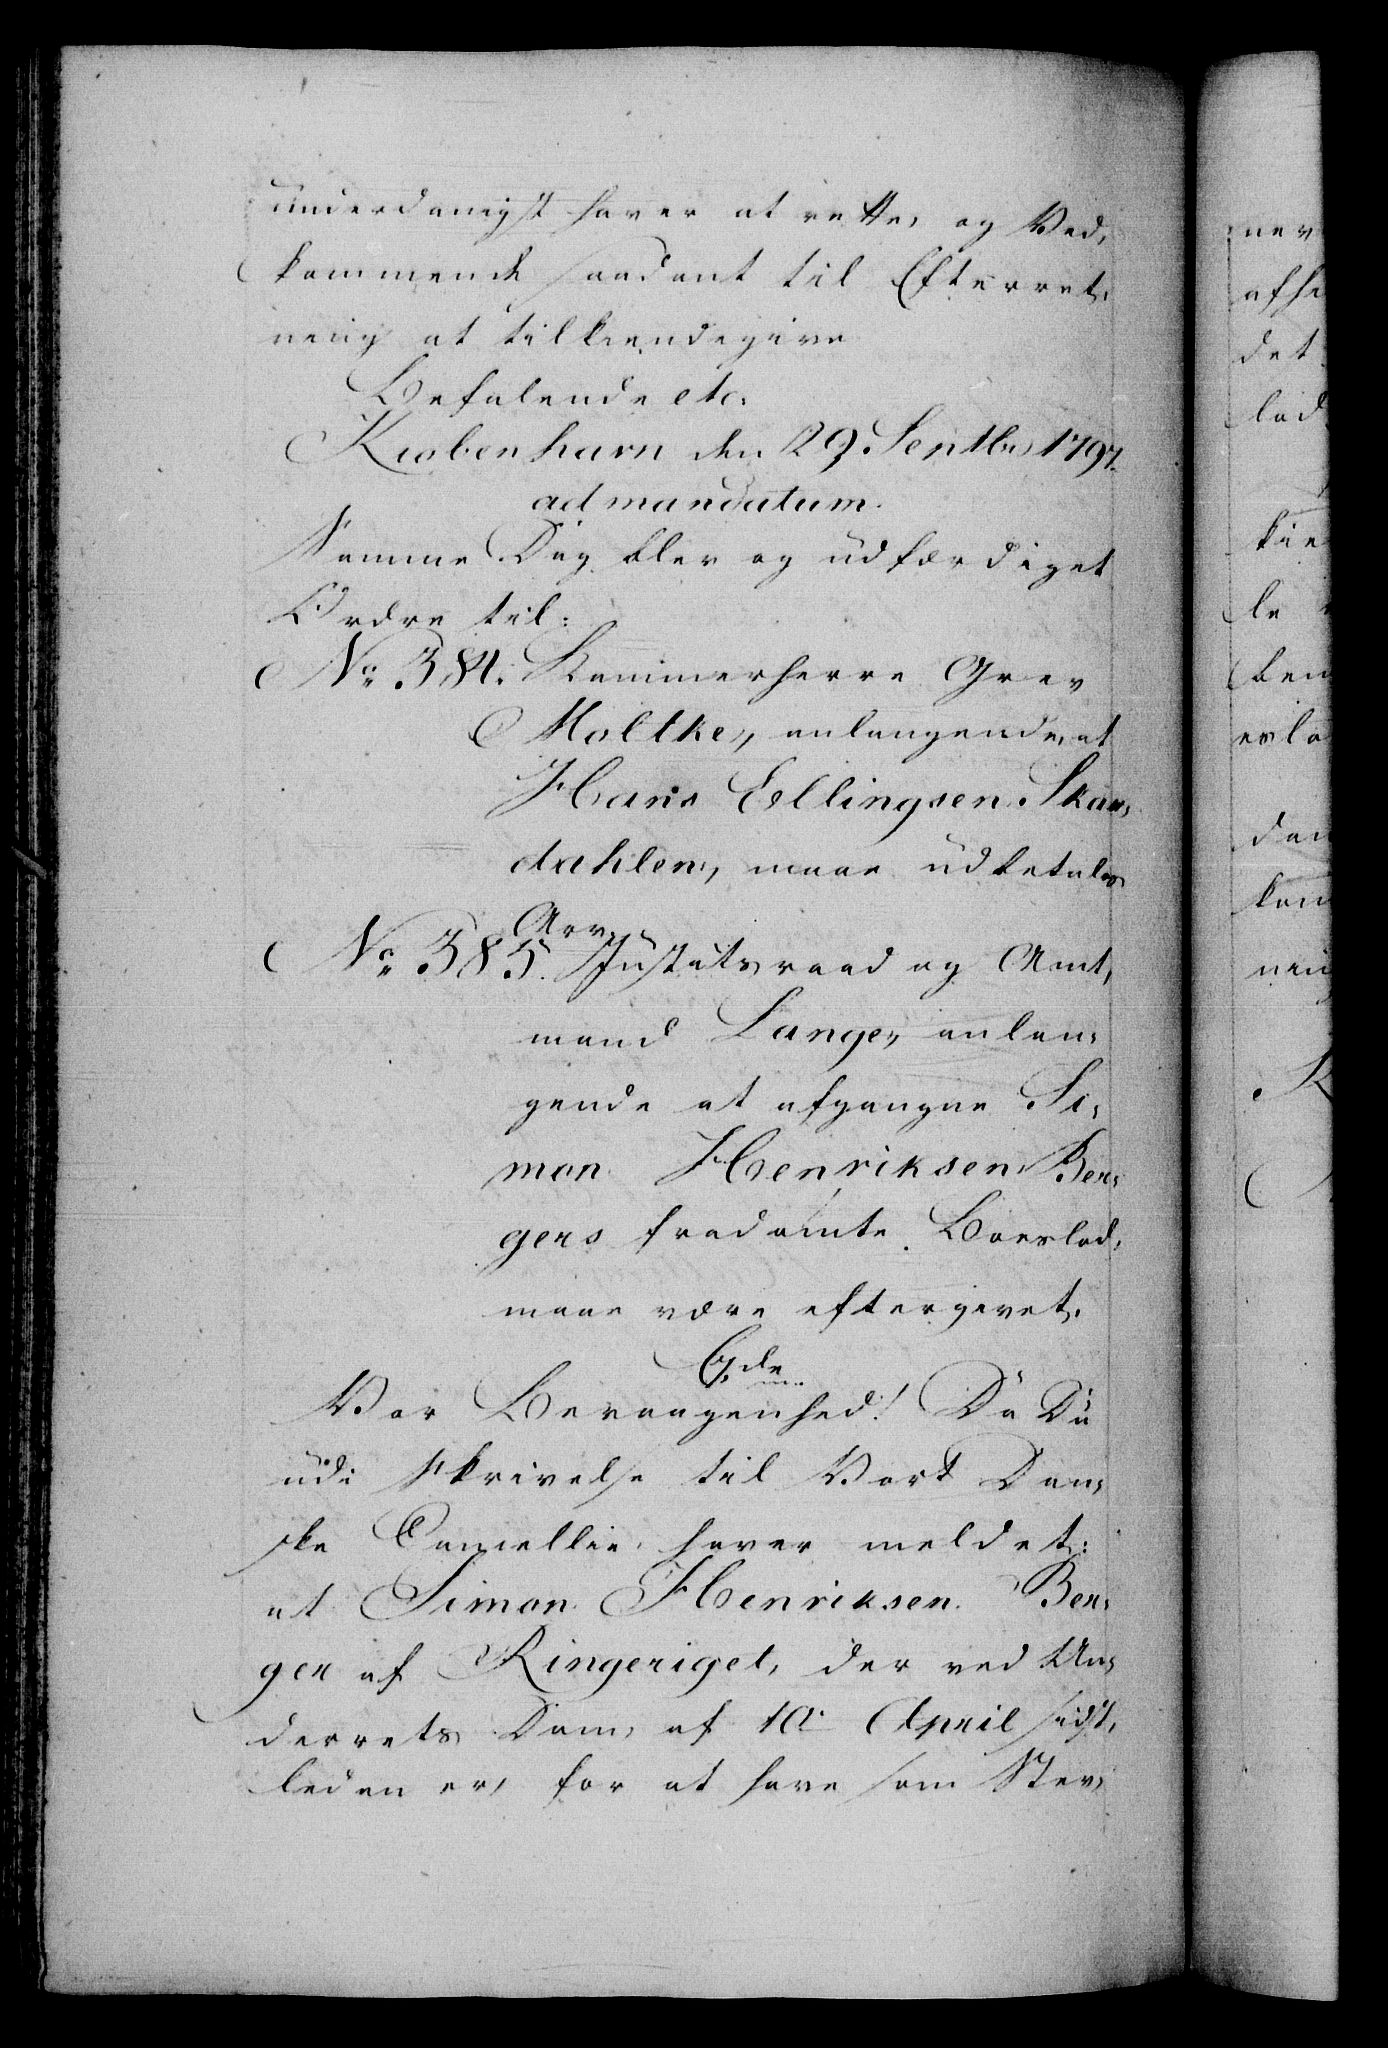 underdanigst haver at rette, og Ved,
kommende saadant til Efterret,
ning at tilkiendegive
Befalende etc.
Kiøbenhavn den 29. Septbr 1797.
ad mandatum.
Samme Dag blev og udfærdiget
Ordre til:
No. 384. Kammerherre Grev
Moltke, anlangende, at
Hans Ellingsen Skan,
dahlen, maae udbetales
Arv.
No. 385. Justitsraad og Amt,
mand Lange, anlan,
gende at afgangne Si,
mon Henriksen Ber,
gers fradømte Boeslod,
maae være eftergivet.
Vor Bevaagenhed! Da Du
udi Skrivelse til Vort Dan,
ske Cancellie haver meldet:
at Simon Henriksen Ber,
ger af Ringeriget, der ved Un,
derrets Dom, af 10 April sidst,
leden er, for at have som Stev,
ner
afhe
det
lod
kie
le
ben
eslo
dan
kom
nin
K